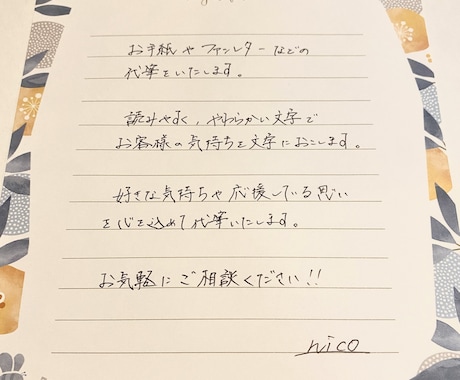 お手紙や ファンレターなどの
代筆をいたします。
読みやすく、やわらかい文字で
お客様の気持ちを文字におこします。
好きな気持ちや応援している思い
を心を込めて代筆いたします。
お気軽にご相談ください!!
nico